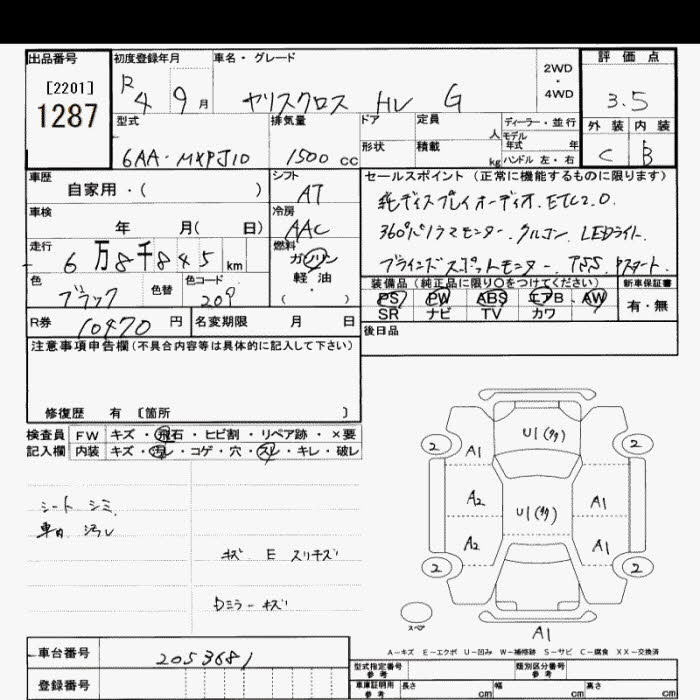 出品番号
[2201]
1287
初度登録年月
R4 9月
車名・グレード
ヤリスクロス HV G
2WD
・
4WD
評価点
3.5
外装 内装
C B
型式
6AA-MXPJ10
排気量
1500 cc
ドア
定員
人
形状
積載
kg
ディーラー・並行
モデル年式 年
ハンドル 左・右
車歴
自家用・( )
シフト
AT
車検
年 月( 日)
冷房
AAC
走行
6万8千845km
燃料
ガソリン
軽・油
( )
色
ブラック
色替
色コード
209
R券
10470円
名変期限 月 日
セールスポイント(正常に機能するものに限ります)
純ディスプレイオーディオ.ETC2.0.
360°パノラマモニター.クルコン.LEDライト.
ブラインドスポットモニター.TSS.Pスタート.
装備品(純正品に限り○をつけてください)
新車保証書
PS PW ABS エアB AW
SR ナビ TV カワ
有・無
後日品
注意事項申告欄(不具合内容等は具体的に記入して下さい)
修復歴 有〔箇所 〕
検査員
記入欄
FW キズ・飛石・ヒビ割・リペア跡・×要
内装 キズ・汚レ・コゲ・穴・スレ・キレ・破レ
シート シミ
車内 汚レ
キズ E スリキズ
Dミラーキズ
U1(タタ)
2 2
A1
A2 A1
U1(タタ)
A2 A1
2 2
スペア
A1
A-キズ E-エクボ U-凹み W-補修跡 S-サビ C-腐食 XX-交換済
車台番号
2053681
登録番号
型式指定番号
参考
類別区分番号
参考
車庫証明用
参考
長さ cm
幅 cm
高さ cm